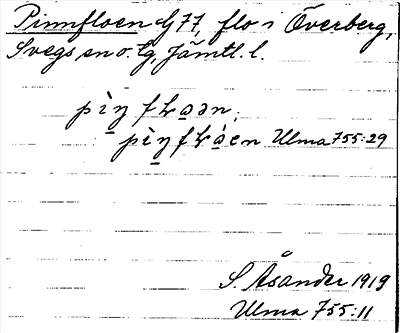 Pinnfloen G 77, flo i Överberg,
Svegs sn o. tg, Jämtl. l.
pìn̠ fɫa̠ən.
pìn̠fɫà̠en Ulma 755:29
S. Åsander 1919
Ulma 755:11